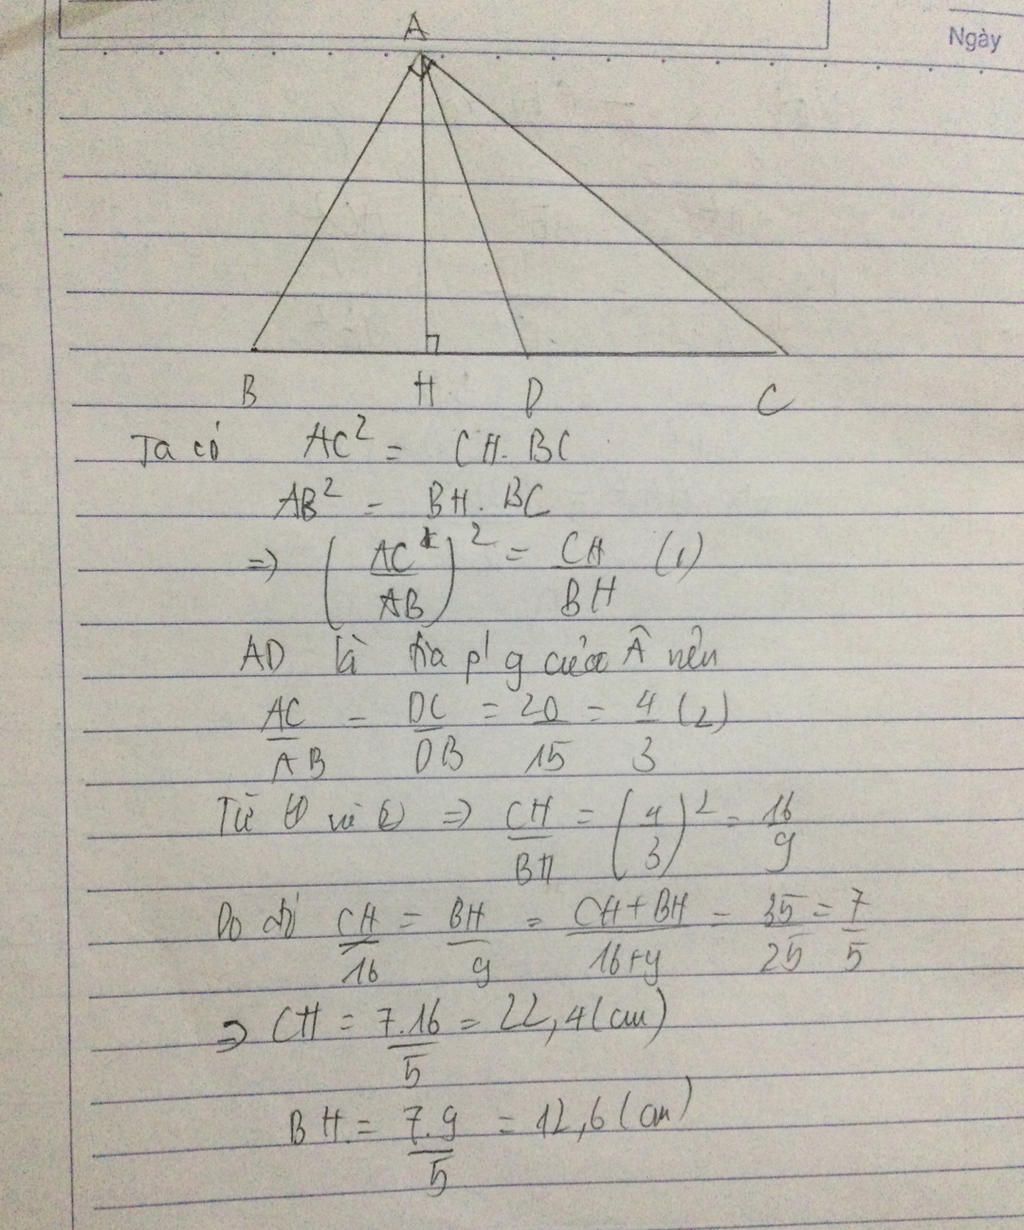 Ngày
A
B H D C
Ta có AC² = CH. BC
AB² = BH. BC
=> (AC/AB)² = CH/BH (1)
AD là tia p/g của Â nên
AC/AB = DC/DB = 20/15 = 4/3 (2)
Từ (1) và (2) => CH/BH = (4/3)² = 16/9
Do đó CH/16 = BH/9 = CH+BH/16+9 = 35/25 = 7/5
=> CH = 7.16/5 = 22,4 (cm)
BH = 7.9/5 = 12,6 (cm)